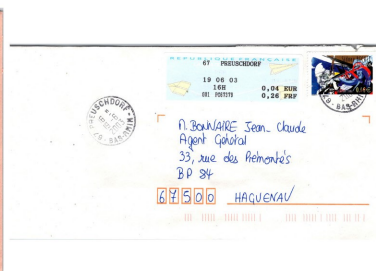 REPUBLIQUE FRANCAISE
67 PREUSCHDORF
19 06 03
16H 0,04 EUR
0,26 FRF
PREUSCHDORF
67 - BAS-RHIN
67 - BAS-RHIN
M. BONWAIRE Jean-Claude
Agent Général
33, rue des Prémontés
BP 84
67500 HAGUENAU